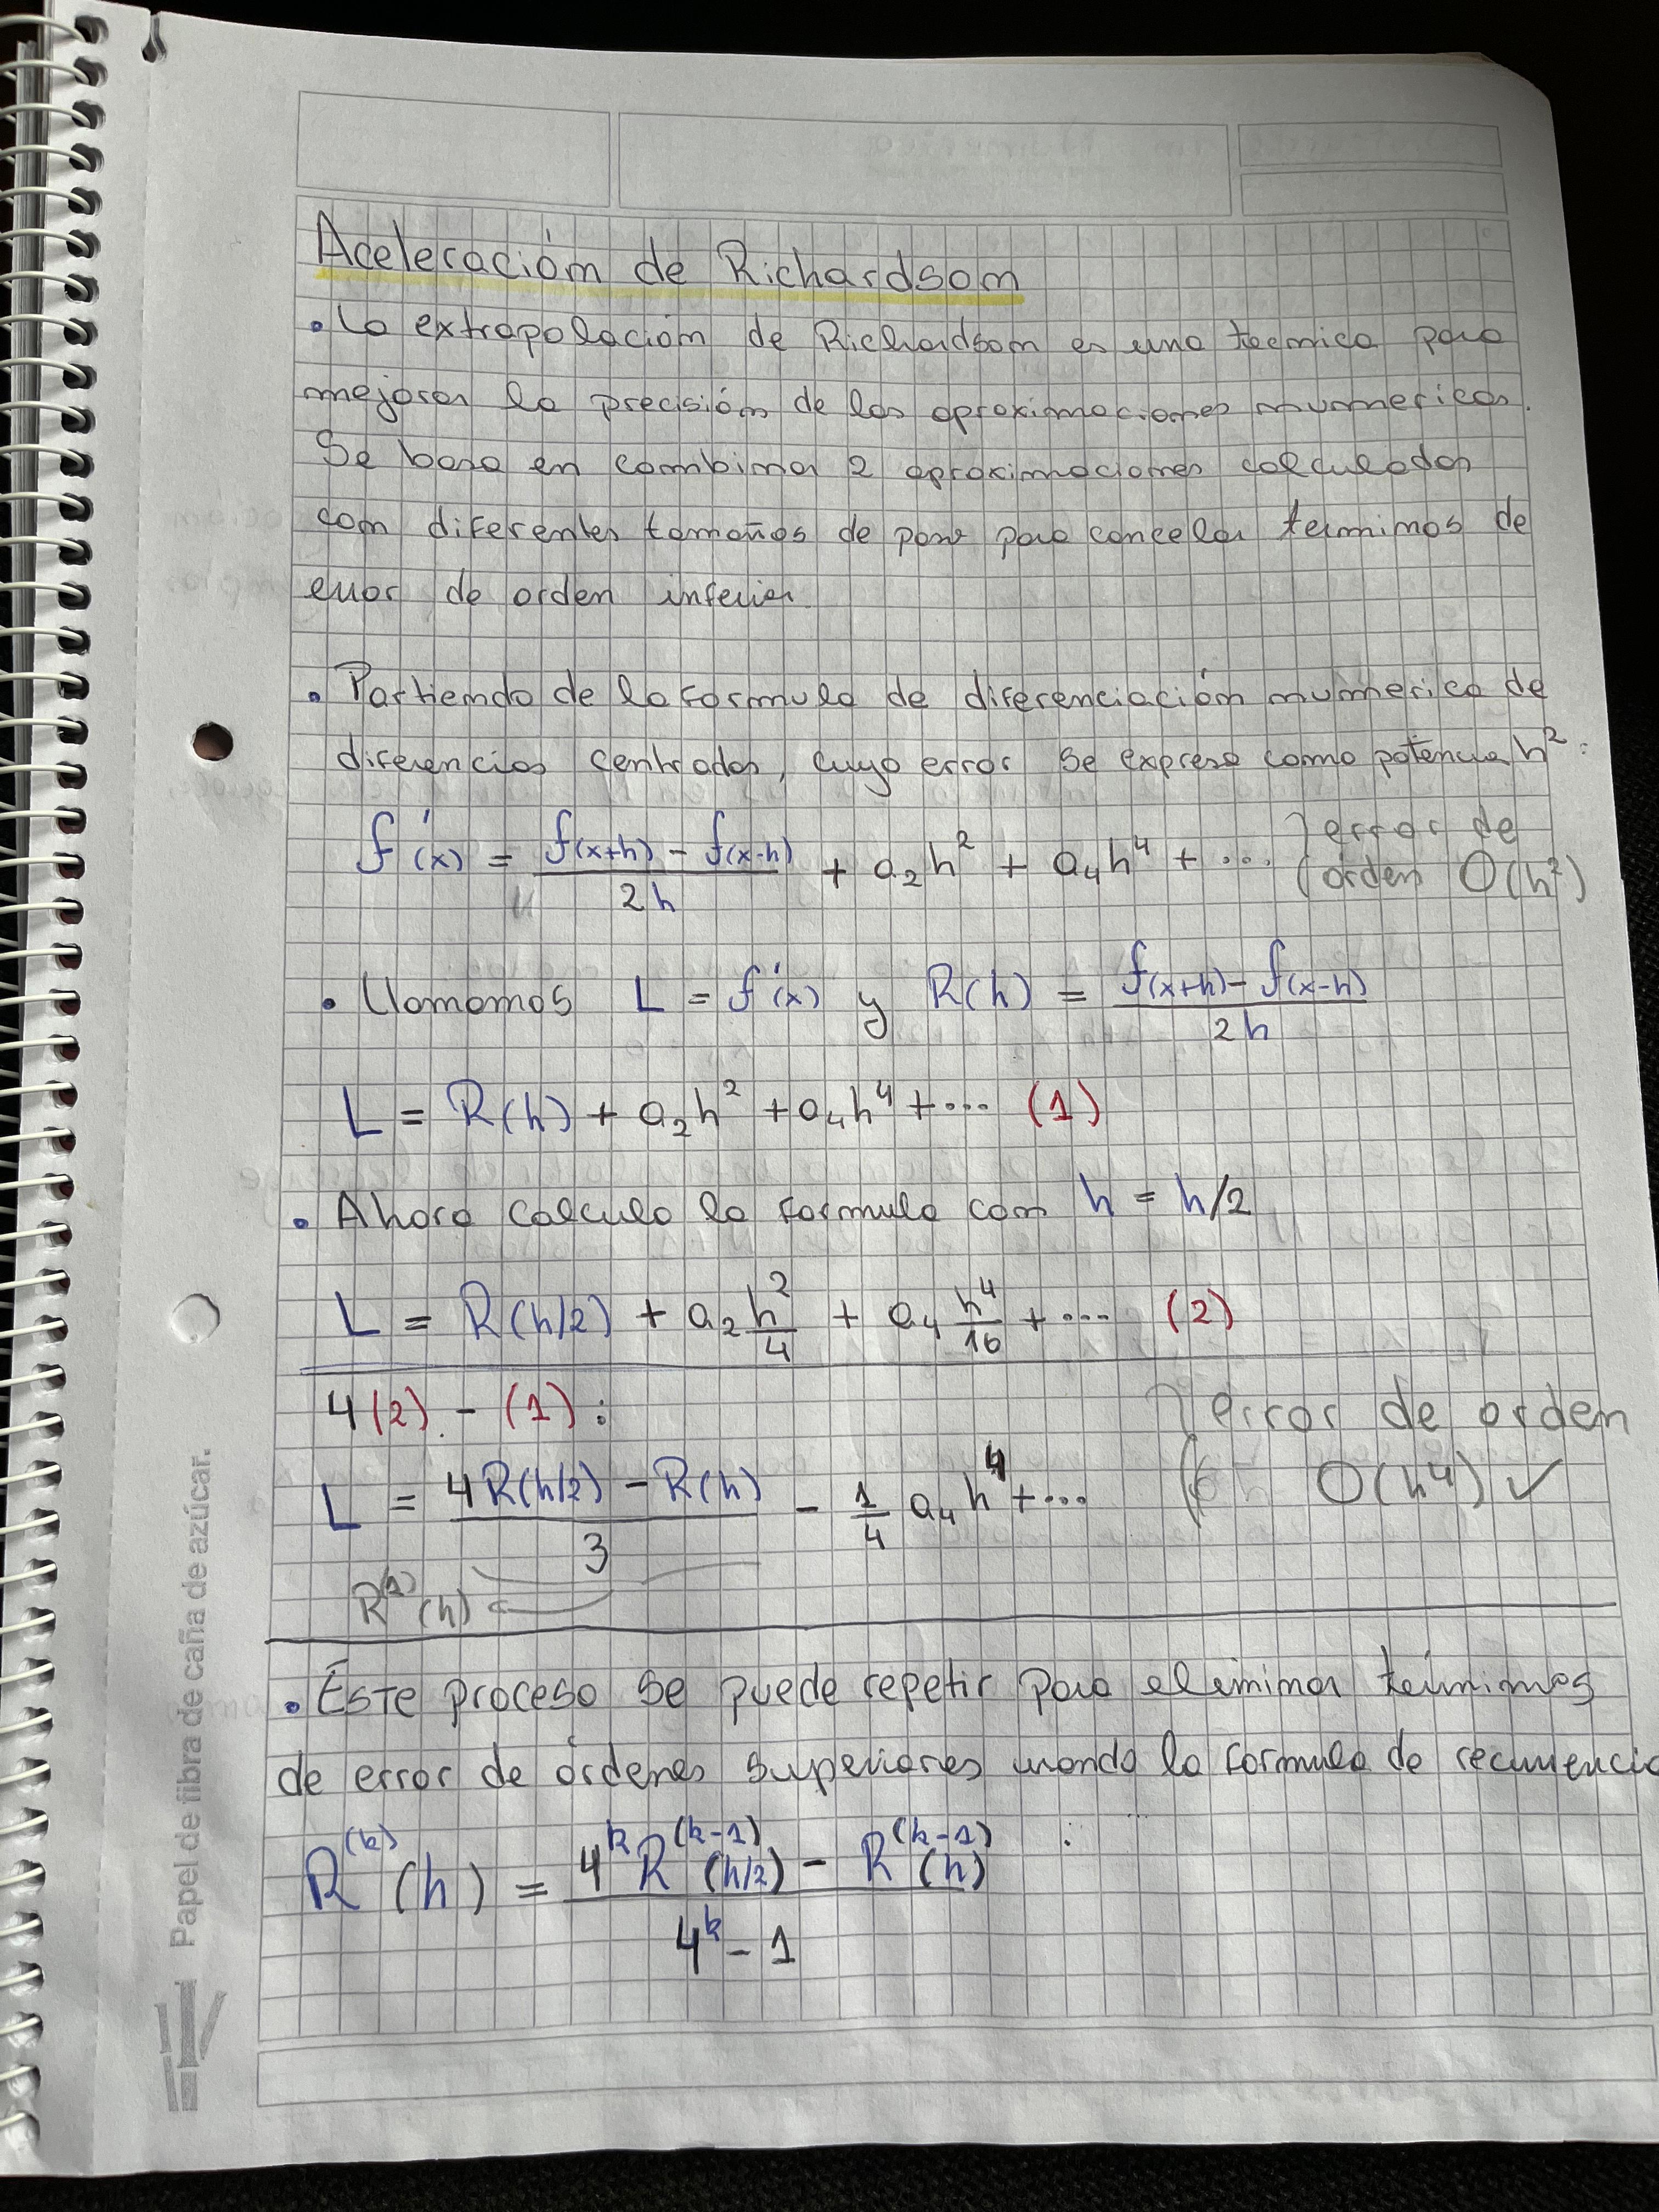 Aceleración de Richardson
• La extrapolación de Richardson es una tecnica para
mejorar la precisión de las aproximaciones numericas.
Se basa en combinar 2 aproximaciones calculadas
con diferentes tamaños de paso para cancelar terminos de
error de orden inferior.
• Partiendo de la formula de diferenciación numerica de
diferencias centradas, cuyo error se expresa como potencia h²:
f'(x) = (f(x+h) - f(x-h))/2h + a₂h² + a₄h⁴ + ... } error de
orden O(h²)
• Llamamos L = f'(x) y R(h) = (f(x+h) - f(x-h))/2h
L = R(h) + a₂h² + a₄h⁴ + ... (1)
• Ahora calculo la formula con h = h/2
L = R(h/2) + a₂ h²/4 + a₄ h⁴/16 + ... (2)
4(2) - (1):
} error de orden
L = (4R(h/2) - R(h))/3 - 1/4 a₄h⁴ + ... O(h⁴) ✓
R⁽¹⁾(h)
• Este proceso se puede repetir para eliminar términos
de error de órdenes superiores usando la formula de recurrencia
:
R⁽ᵏ⁾(h) = (4ᵏR⁽ᵏ⁻¹⁾(h/2) - R⁽ᵏ⁻¹⁾(h))/(4ᵏ - 1)
Papel de fibra de caña de azúcar.